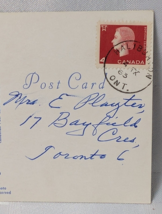 CANADA
ONT.
Post Card
Mrs. E. Playter
17 Bayfield
Cres.
Toronto 6